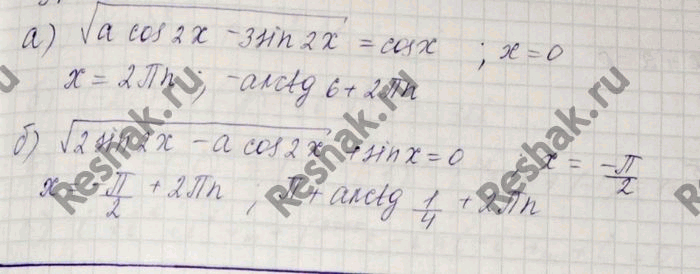 а) √(a cos2x - 3sin2x) = cosx ; x=0
x = 2πn ; -arctg 6 + 2πn
б) √(2sin2x - a cos2x) + sinx = 0 , x = -π/2
x = -π/2 + 2πn ; π + arctg 1/4 + 2πn
Reshak.ru Reshak.ru Reshak.ru